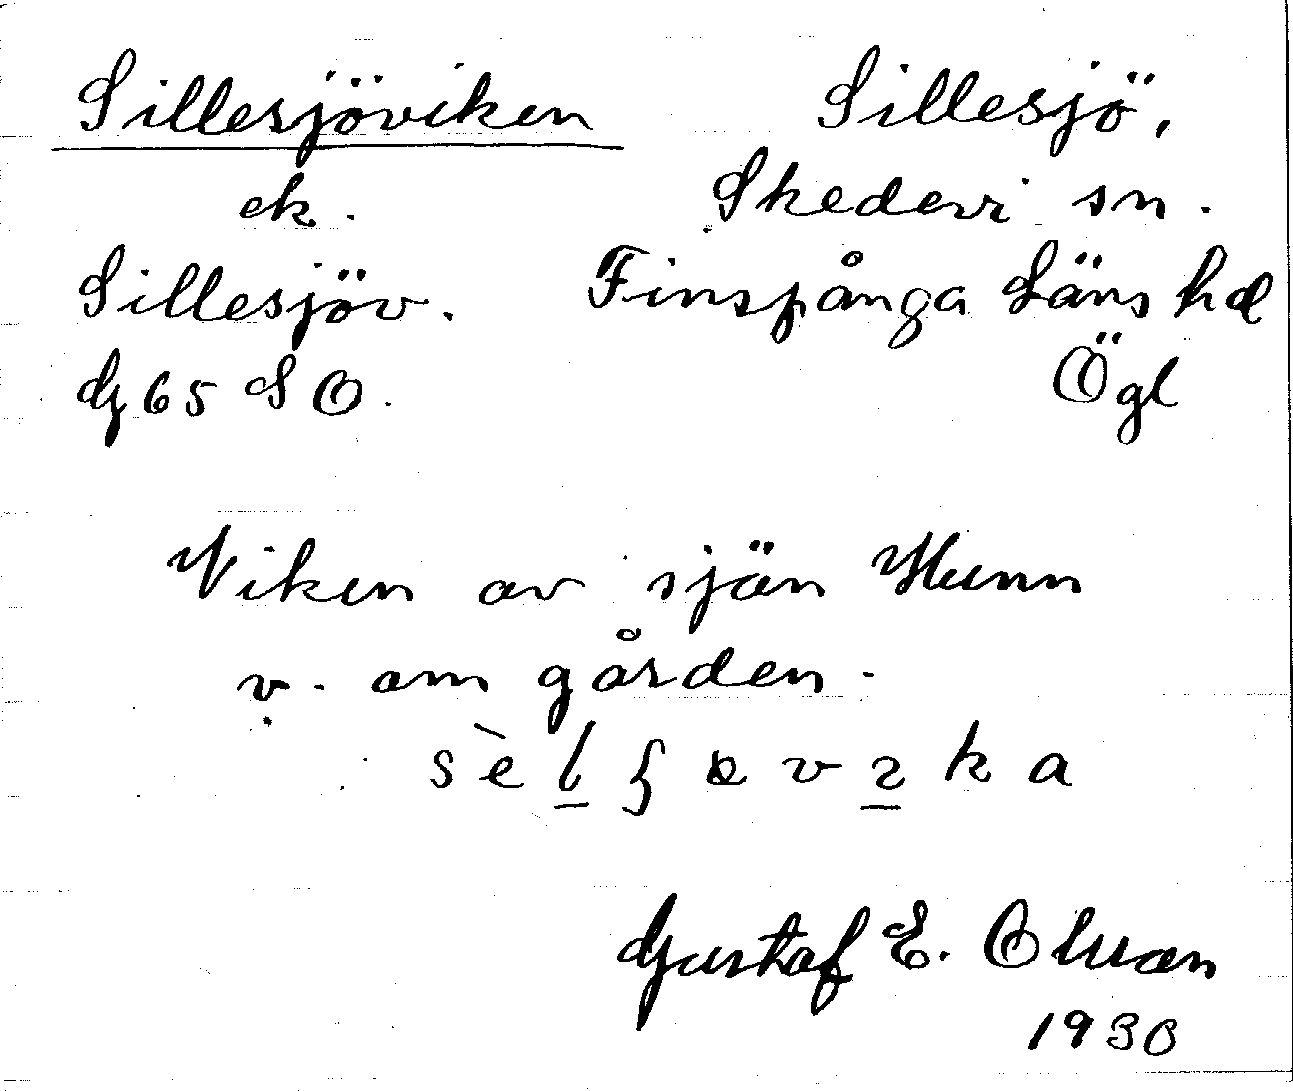 Sillesjöviken
ek.
Sillesjöv.
G 65 S O.
Sillesjö,
Skedevi sn.
Finspånga Läns hd
Ögl
Viken av sjön Hunn
v. om gården.
1930
Gustaf E. Olsson